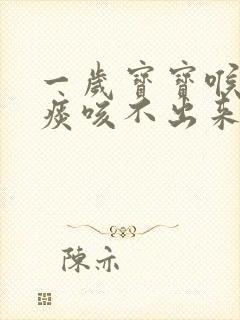 一岁宝宝喉
痰咳不出来
陈亦